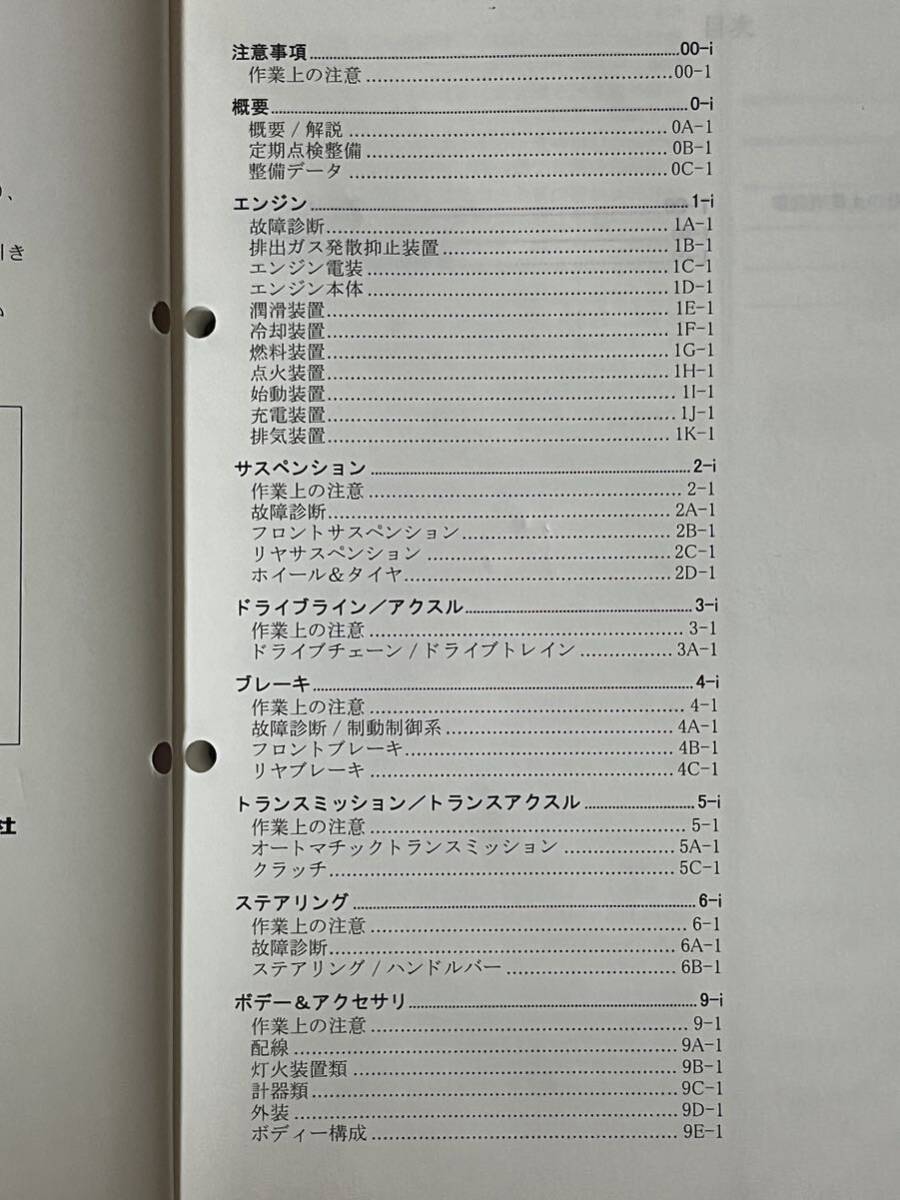 注意事項........00-i
作業上の注意........00-1
概要........0-i
概要 / 解説........0A-1
定期点検整備........0B-1
整備データ........0C-1
エンジン........1-i
故障診断........1A-1
排出ガス発散抑止装置........1B-1
エンジン電装........1C-1
エンジン本体........1D-1
潤滑装置........1E-1
冷却装置........1F-1
燃料装置........1G-1
点火装置........1H-1
始動装置........1I-1
充電装置........1J-1
排気装置........1K-1
サスペンション........2-i
作業上の注意........2-1
故障診断........2A-1
フロントサスペンション........2B-1
リヤサスペンション........2C-1
ホイール&タイヤ........2D-1
ドライブライン/アクスル........3-i
作業上の注意........3-1
ドライブチェーン / ドライブトレイン........3A-1
ブレーキ........4-i
作業上の注意........4-1
故障診断 / 制動制御系........4A-1
フロントブレーキ........4B-1
リヤブレーキ........4C-1
トランスミッション/トランスアクスル........5-i
作業上の注意........5-1
オートマチックトランスミッション........5A-1
クラッチ........5C-1
ステアリング........6-i
作業上の注意........6-1
故障診断........6A-1
ステアリング / ハンドルバー........6B-1
ボデー&アクセサリ........9-i
作業上の注意........9-1
配線........9A-1
灯火装置類........9B-1
計器類........9C-1
外装........9D-1
ボディー構成........9E-1
き
社